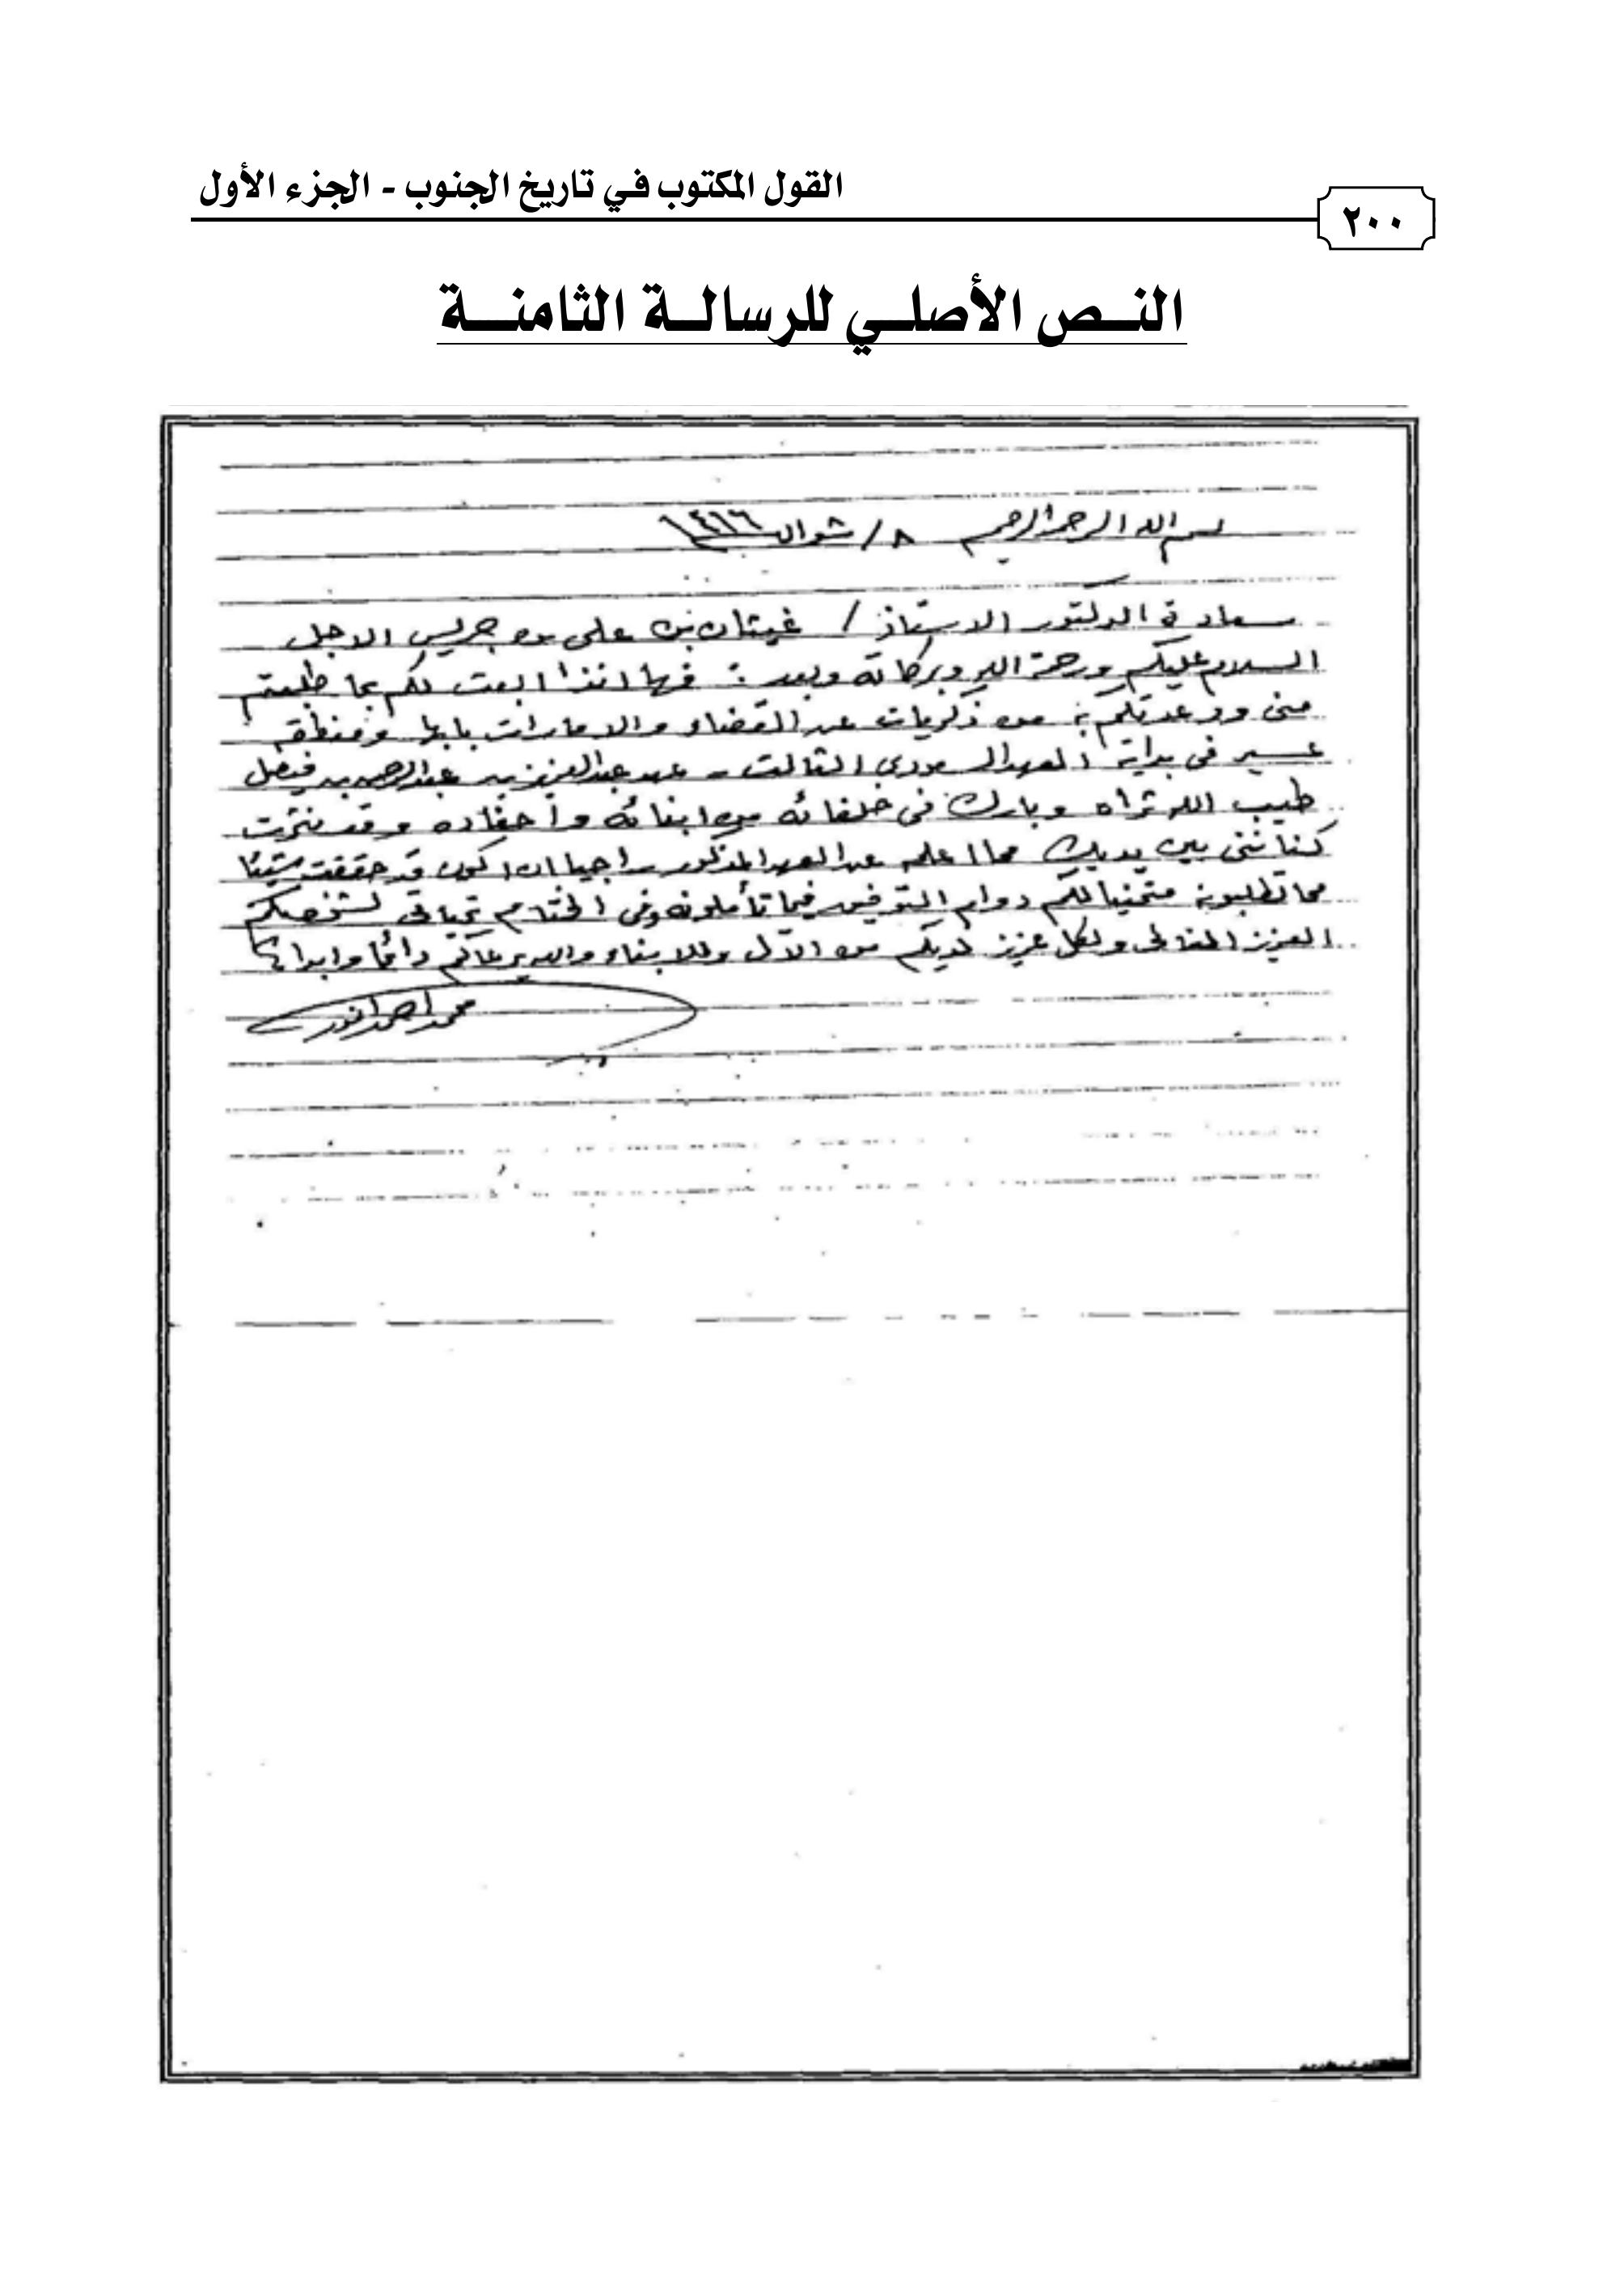 القول المكتوب في تاريخ الجنوب - الجزء الأول
٢٠٠
النص الأصلي للرسالة الثامنة
بسم الله الرحمن الرحيم ٨/ شوال ١٤١٦
سعادة الدكتور الاستاذ / غيثان بن على بن جريس الاجل
السلام عليكم ورحمة الله وبركاته وبعد : فها انذا ابعث لكم بما طلبتم
منى ووعدتكم به من ذكريات عن القضاء والامارات بابها ومنطقة
عسير فى بداية العهد السعودى الثالث - عهد عبدالعزيز بن عبدالرحمن بن فيصل
طيب الله ثراه وبارك فى خلفائه من ابنائه وأحفاده وقد نثرت
كنانتى بين يديك مما اعلم عن العهد المذكور راجيا ان اكون قد حققت شيئا
مما تطلبونه متمنيا لكم دوام التوفيق فيما تأملونه وفى الختام تحياتى لشخصكم
العزيز الغالى ولكل عزيز لديكم من الآل وللابناء والله يرعاكم دائما وابدا
محمد احمد انور